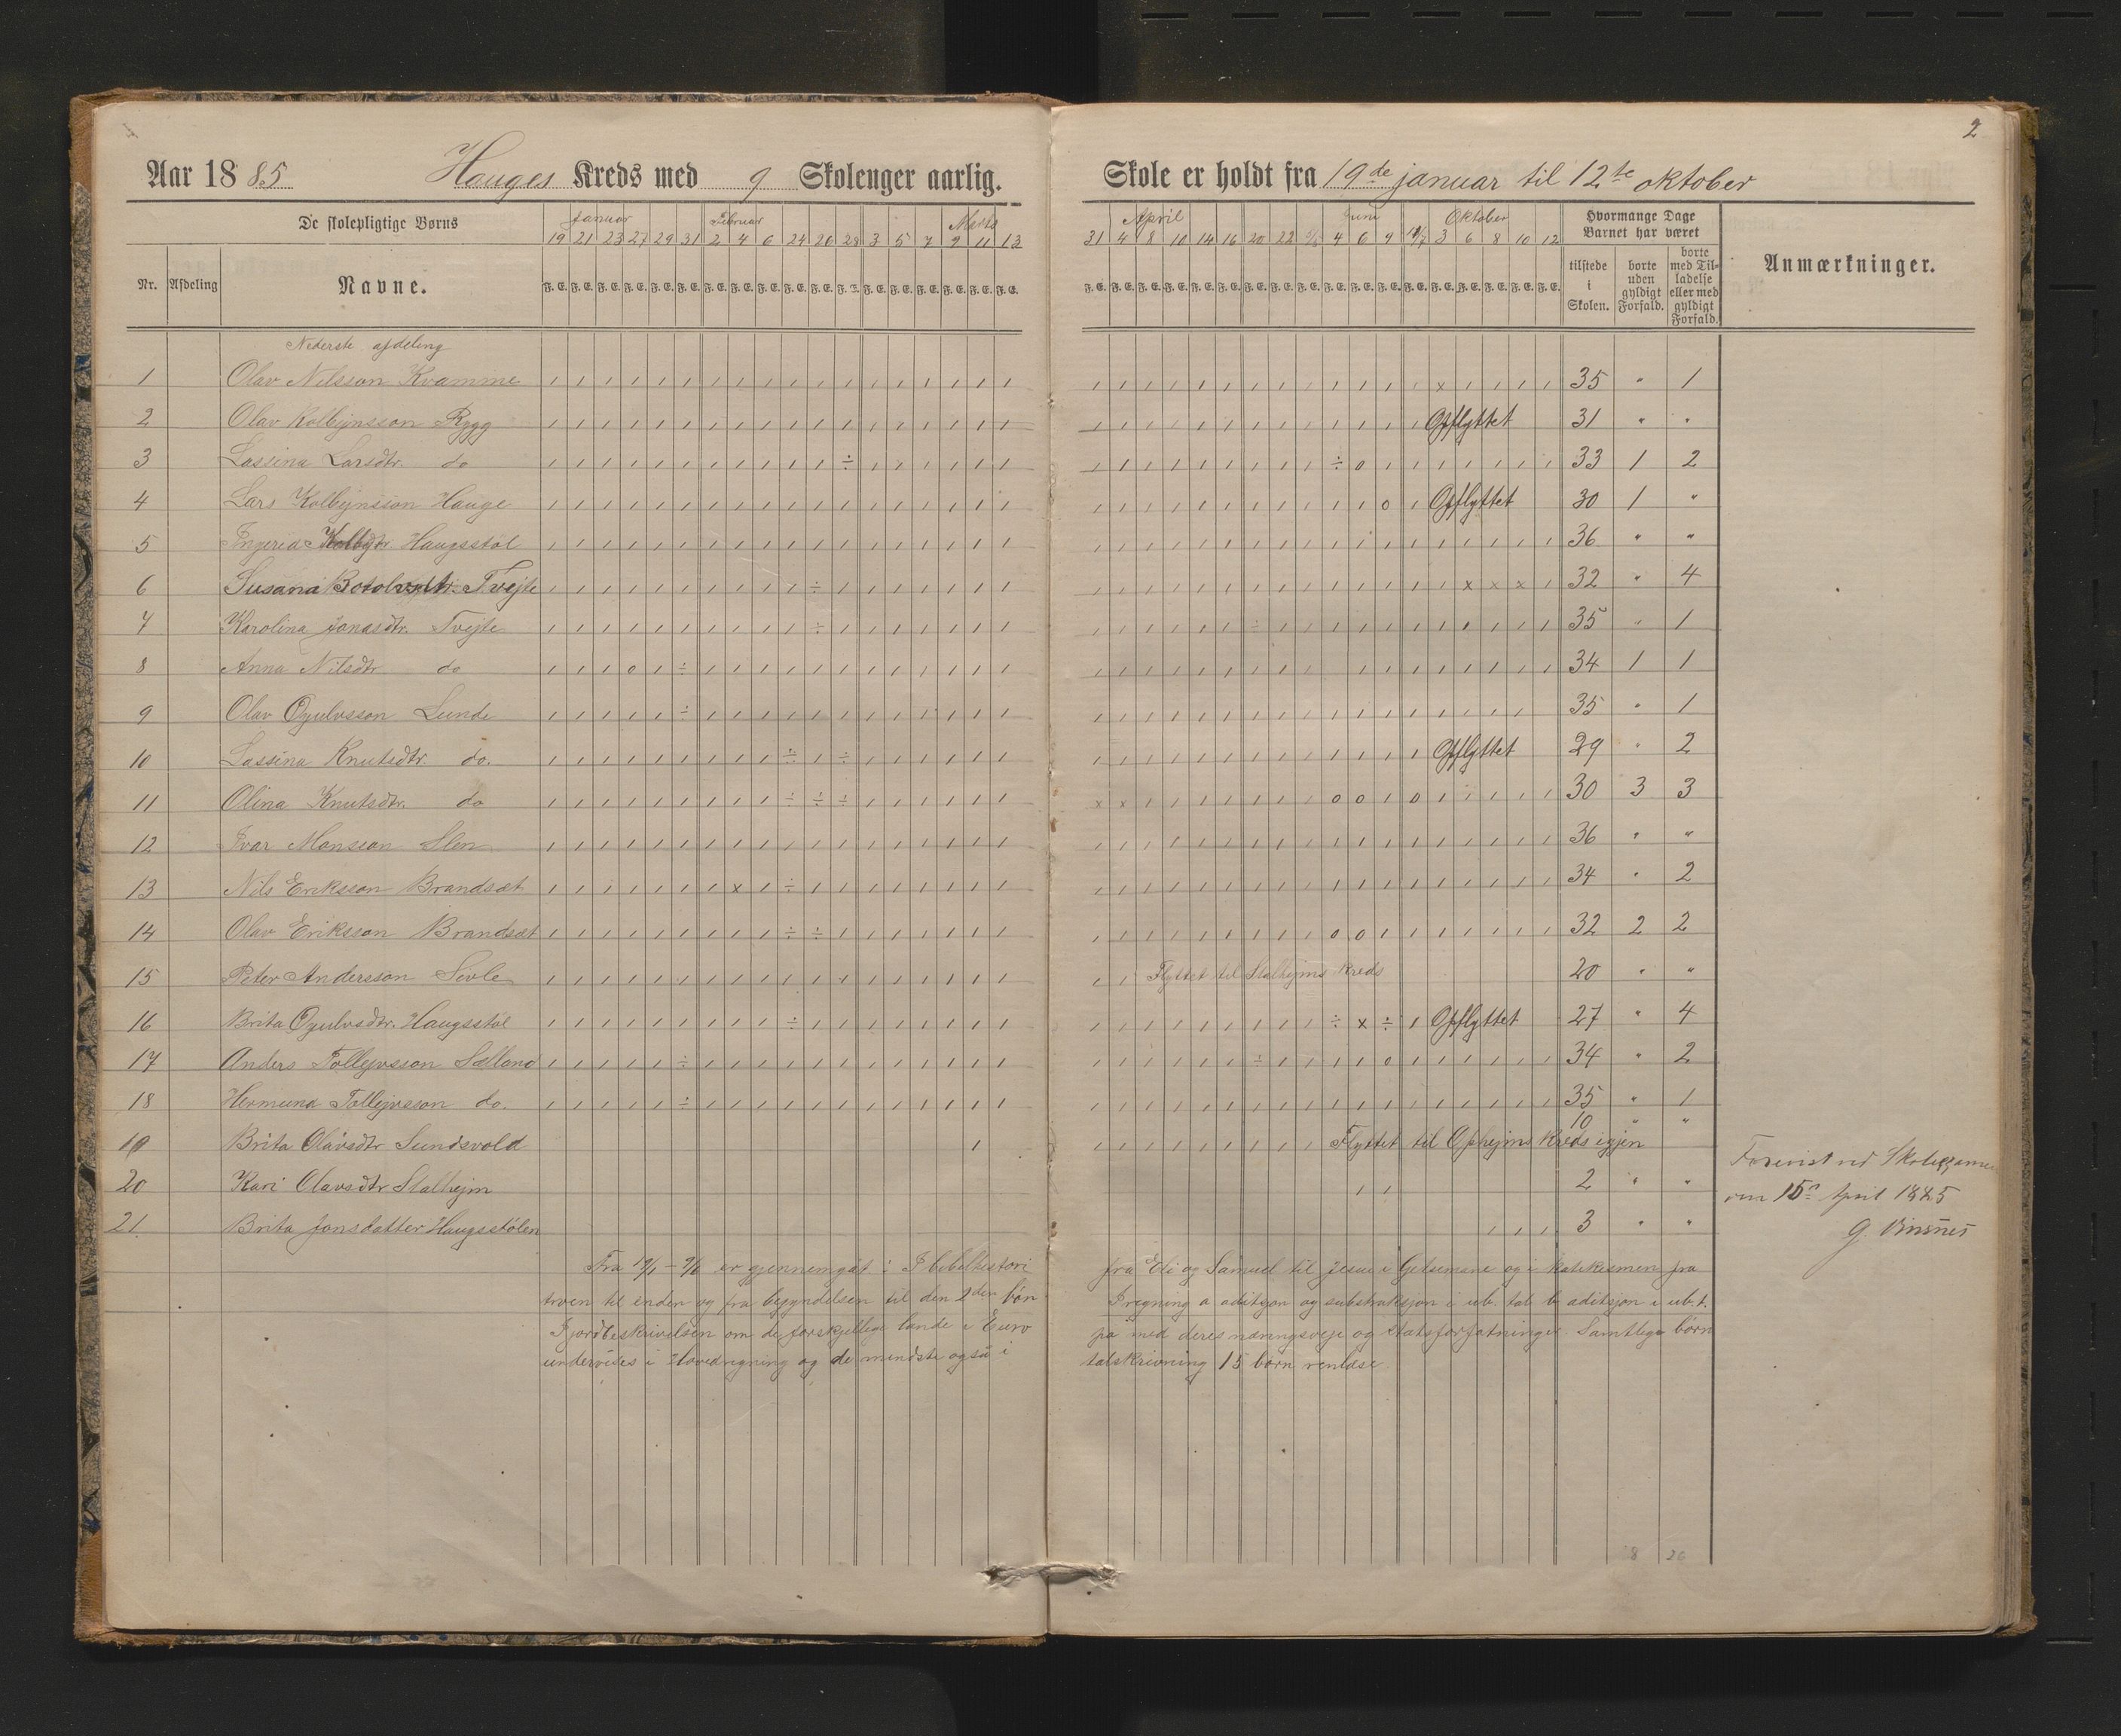 2
Aar 1885 Hauges Kreds med 9 Skoleuger aarlig. Skole er holdt fra 19de januar til 12te oktober
De skolepligtige Børns
Januar Februar Marts April Juni Oktober
Hvormange Dage Barnet har været
19 21 23 27 29 31 2 4 6 24 26 28 3 5 7 9 11 13 31 4 8 10 14 16 20 22 4 6 9 3 6 8 10 12
Nr. Afdeling Navne. F. E. F. E. F. E. F. E. F. E. F. E. F. E. F. E. F. E. F. E. F. E. F. E. F. E. F. E. F. E. F. E. F. E. F. E. F. E. F. E. F. E. F. E. F. E. F. E. F. E. F. E. F. E. F. E. F. E. F. E. F. E. F. E. F. E. F. E. F. E. F. E. tilstede i Skolen. borte uden gyldigt Forfald. borte med Tilladelse eller med gyldigt Forfald. Anmærkninger.
Nederste afdeling
1 Olav Nilsson Kvamme 35 " 1
2 Olav Kolbejnsson Rygg Opflyttet 31 " "
3 Lassina Larsdtr. do 33 1 2
4 Lars Kolbejnsson Hauge Opflyttet 30 1 "
5 Ingerid Haugsstøl 36 " "
6 Susana Tvejte 32 " 4
7 Karolina Jonasdtr. Tvejte 35 " 1
8 Anna Nilsdtr do 34 1 1
9 Olav Ogulvsson Lunde 35 " 1
10 Lassina Knutsdtr. do. Opflyttet 29 " 2
11 Olina Knutsdtr. do 30 3 3
12 Ivar Monsson Slen 36 " "
13 Nils Eriksson Brandsæt 34 " 2
14 Olav Eriksson Brandsæt 32 2 2
15 Peter Andersson Sevle Flyttet til Stalhejms kreds 20 " "
16 Brita Ogulvsdtr. Haugsstøl Opflyttet 27 " 4
17 Anders Tollejvsson Sælland 34 " 2
18 Hermund Tollejvsson do. 35 " 1
19 Brita Olavsdtr Sundsvold Flyttet til Ophejms kreds igjen 10 " "
20 Kari Olavsdtr Stalhejm 2 " "
21. Brita Jonsdatter Haugsstølen 3 " "
Forevist ved Skoleexamen
den 15de April 1885
G. Vinsnes
Fra 19/1 – 9/6 er gjennemgåt i Bibelhistori fra Eli og Samuel til Jesus i Getsemane og i katekismen fra
troen til enden og fra begyndelsen til den 2den bøn I regning a aditsjon og substraksjon i ub. tal b aditsjon i ub. t.
I jordbeskrivelsen om de forskjellige lande i Euro pa med deres næringsveje og statsforfatninger. Samtlige børn
undervises i Hovedregning og de mindste også i talskrivning 15 børn renlæse.
8 26